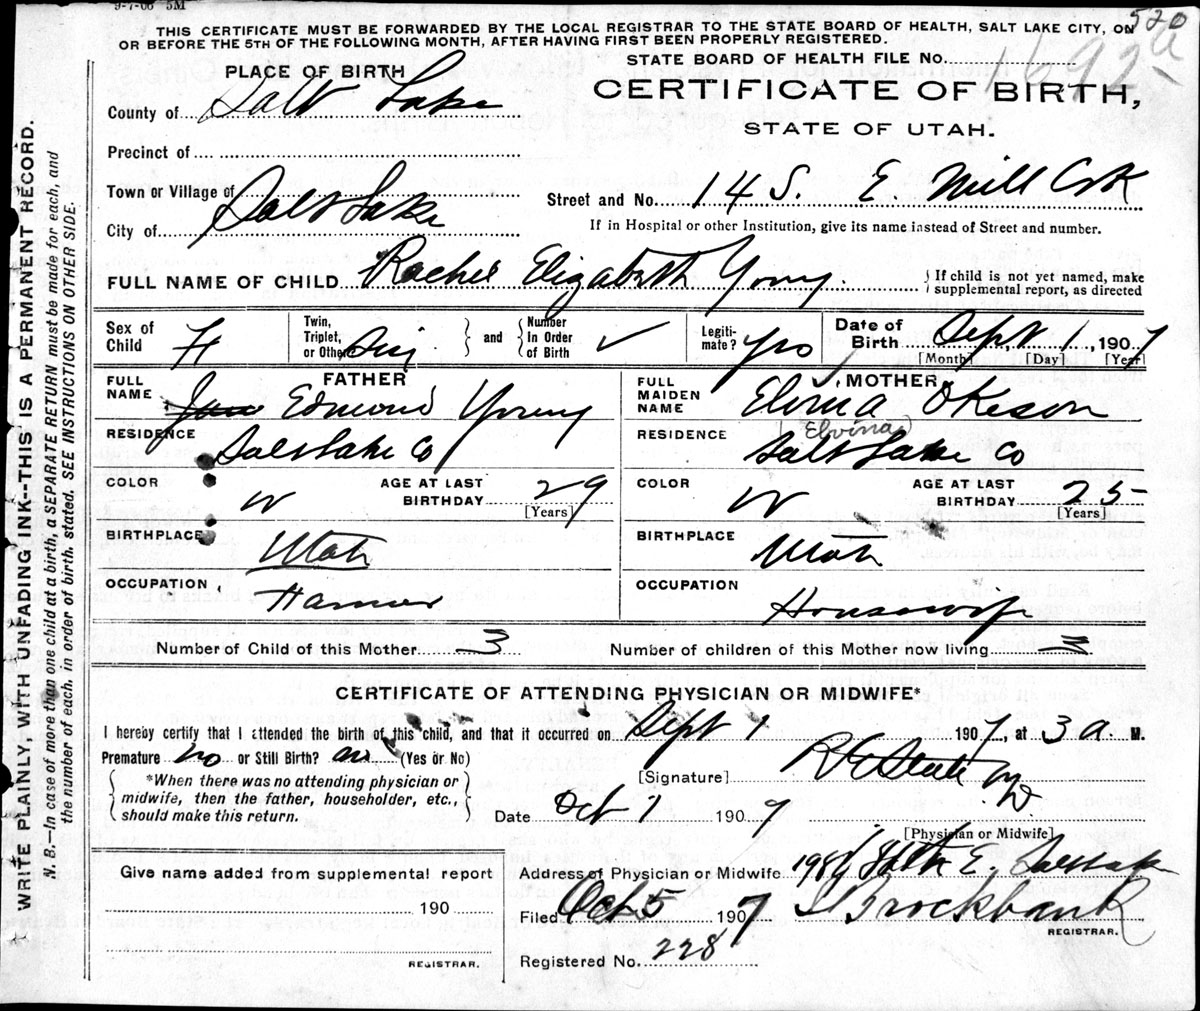 9-7-06 5M
THIS CERTIFICATE MUST BE FORWARDED BY THE LOCAL REGISTRAR TO THE STATE BOARD OF HEALTH, SALT LAKE CITY, ON
OR BEFORE THE 5TH OF THE FOLLOWING MONTH, AFTER HAVING FIRST BEEN PROPERLY REGISTERED.
520
STATE BOARD OF HEALTH FILE No. 1692
PLACE OF BIRTH
CERTIFICATE OF BIRTH,
STATE OF UTAH.
County of Salt Lake
Precinct of
Town or Village of
City of Salt Lake
Street and No. 14 S. E. Mill Crk
If in Hospital or other Institution, give its name instead of Street and number.
FULL NAME OF CHILD Rachel Elizabeth Young. {If child is not yet named, make supplemental report, as directed
Sex of Child F
Twin, Triplet, or Other Sin } and { Number In Order of Birth ✓
Legitimate? yes
Date of Birth Sept 1, 1907
[Month] [Day] [Year]
FATHER
FULL NAME Edmond Young
RESIDENCE Salt Lake Co
COLOR W AGE AT LAST BIRTHDAY 29
[Years]
BIRTHPLACE Utah
OCCUPATION Farmer
MOTHER
FULL MAIDEN NAME Elvina Okeson
(Elvina)
RESIDENCE Salt Lake Co
COLOR W AGE AT LAST BIRTHDAY 25
[Years]
BIRTHPLACE Utah
OCCUPATION Housewife
Number of Child of this Mother 3 Number of children of this Mother now living 3
CERTIFICATE OF ATTENDING PHYSICIAN OR MIDWIFE*
I hereby certify that I attended the birth of this child, and that it occurred on Sept 1 1907, at 3 a. M.
Premature no or Still Birth? no (Yes or No)
{ *When there was no attending physician or
midwife, then the father, householder, etc.,
should make this return. }
[Signature]
Date Oct 1 1907
[Physician or Midwife]
Give name added from supplemental report
190
REGISTRAR.
Address of Physician or Midwife
Filed Oct 5 1907 Brockbank
REGISTRAR.
Registered No. 228
WRITE PLAINLY, WITH UNFADING INK--THIS IS A PERMANENT RECORD.
N. B.—In case of more than one child at a birth, a SEPARATE RETURN must be made for each, and
the number of each, in order of birth, stated. SEE INSTRUCTIONS ON OTHER SIDE.